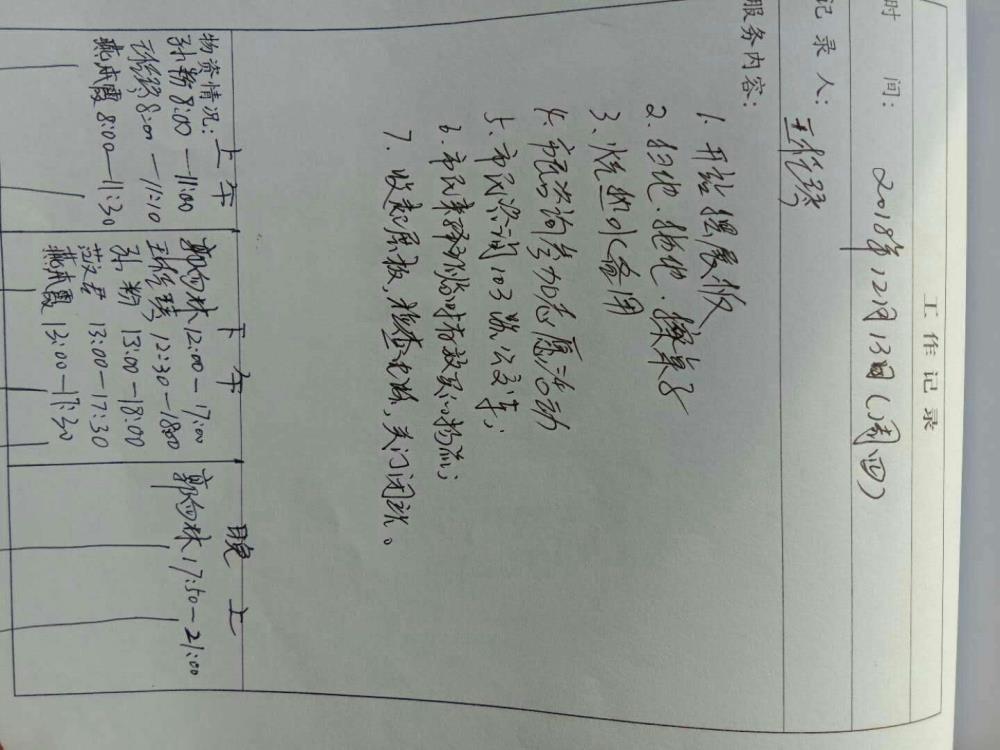 工作记录
时 间: 2018年12月13日(周四)
记录人:
服务内容:
1. 开站摆展板
2. 扫地.拖地.擦桌子
3. 烧热水备用
4. 市民咨询参加志愿活动
5. 市民咨询103路公交车;
6. 市民来驿站临时存放东西物流;
7. 收起展板,检查电路,关门闭站。
物资情况: 上午
孙粉 8:00—11:00
8:00—11:10
燕成霞 8:00—11:30
下午
郭向林 12:00—17:00
12:30—18:00
孙粉 13:00—18:00
范文君 13:00—17:30
燕成霞 13:00—17:30
晚上
郭向林 17:50—21:00